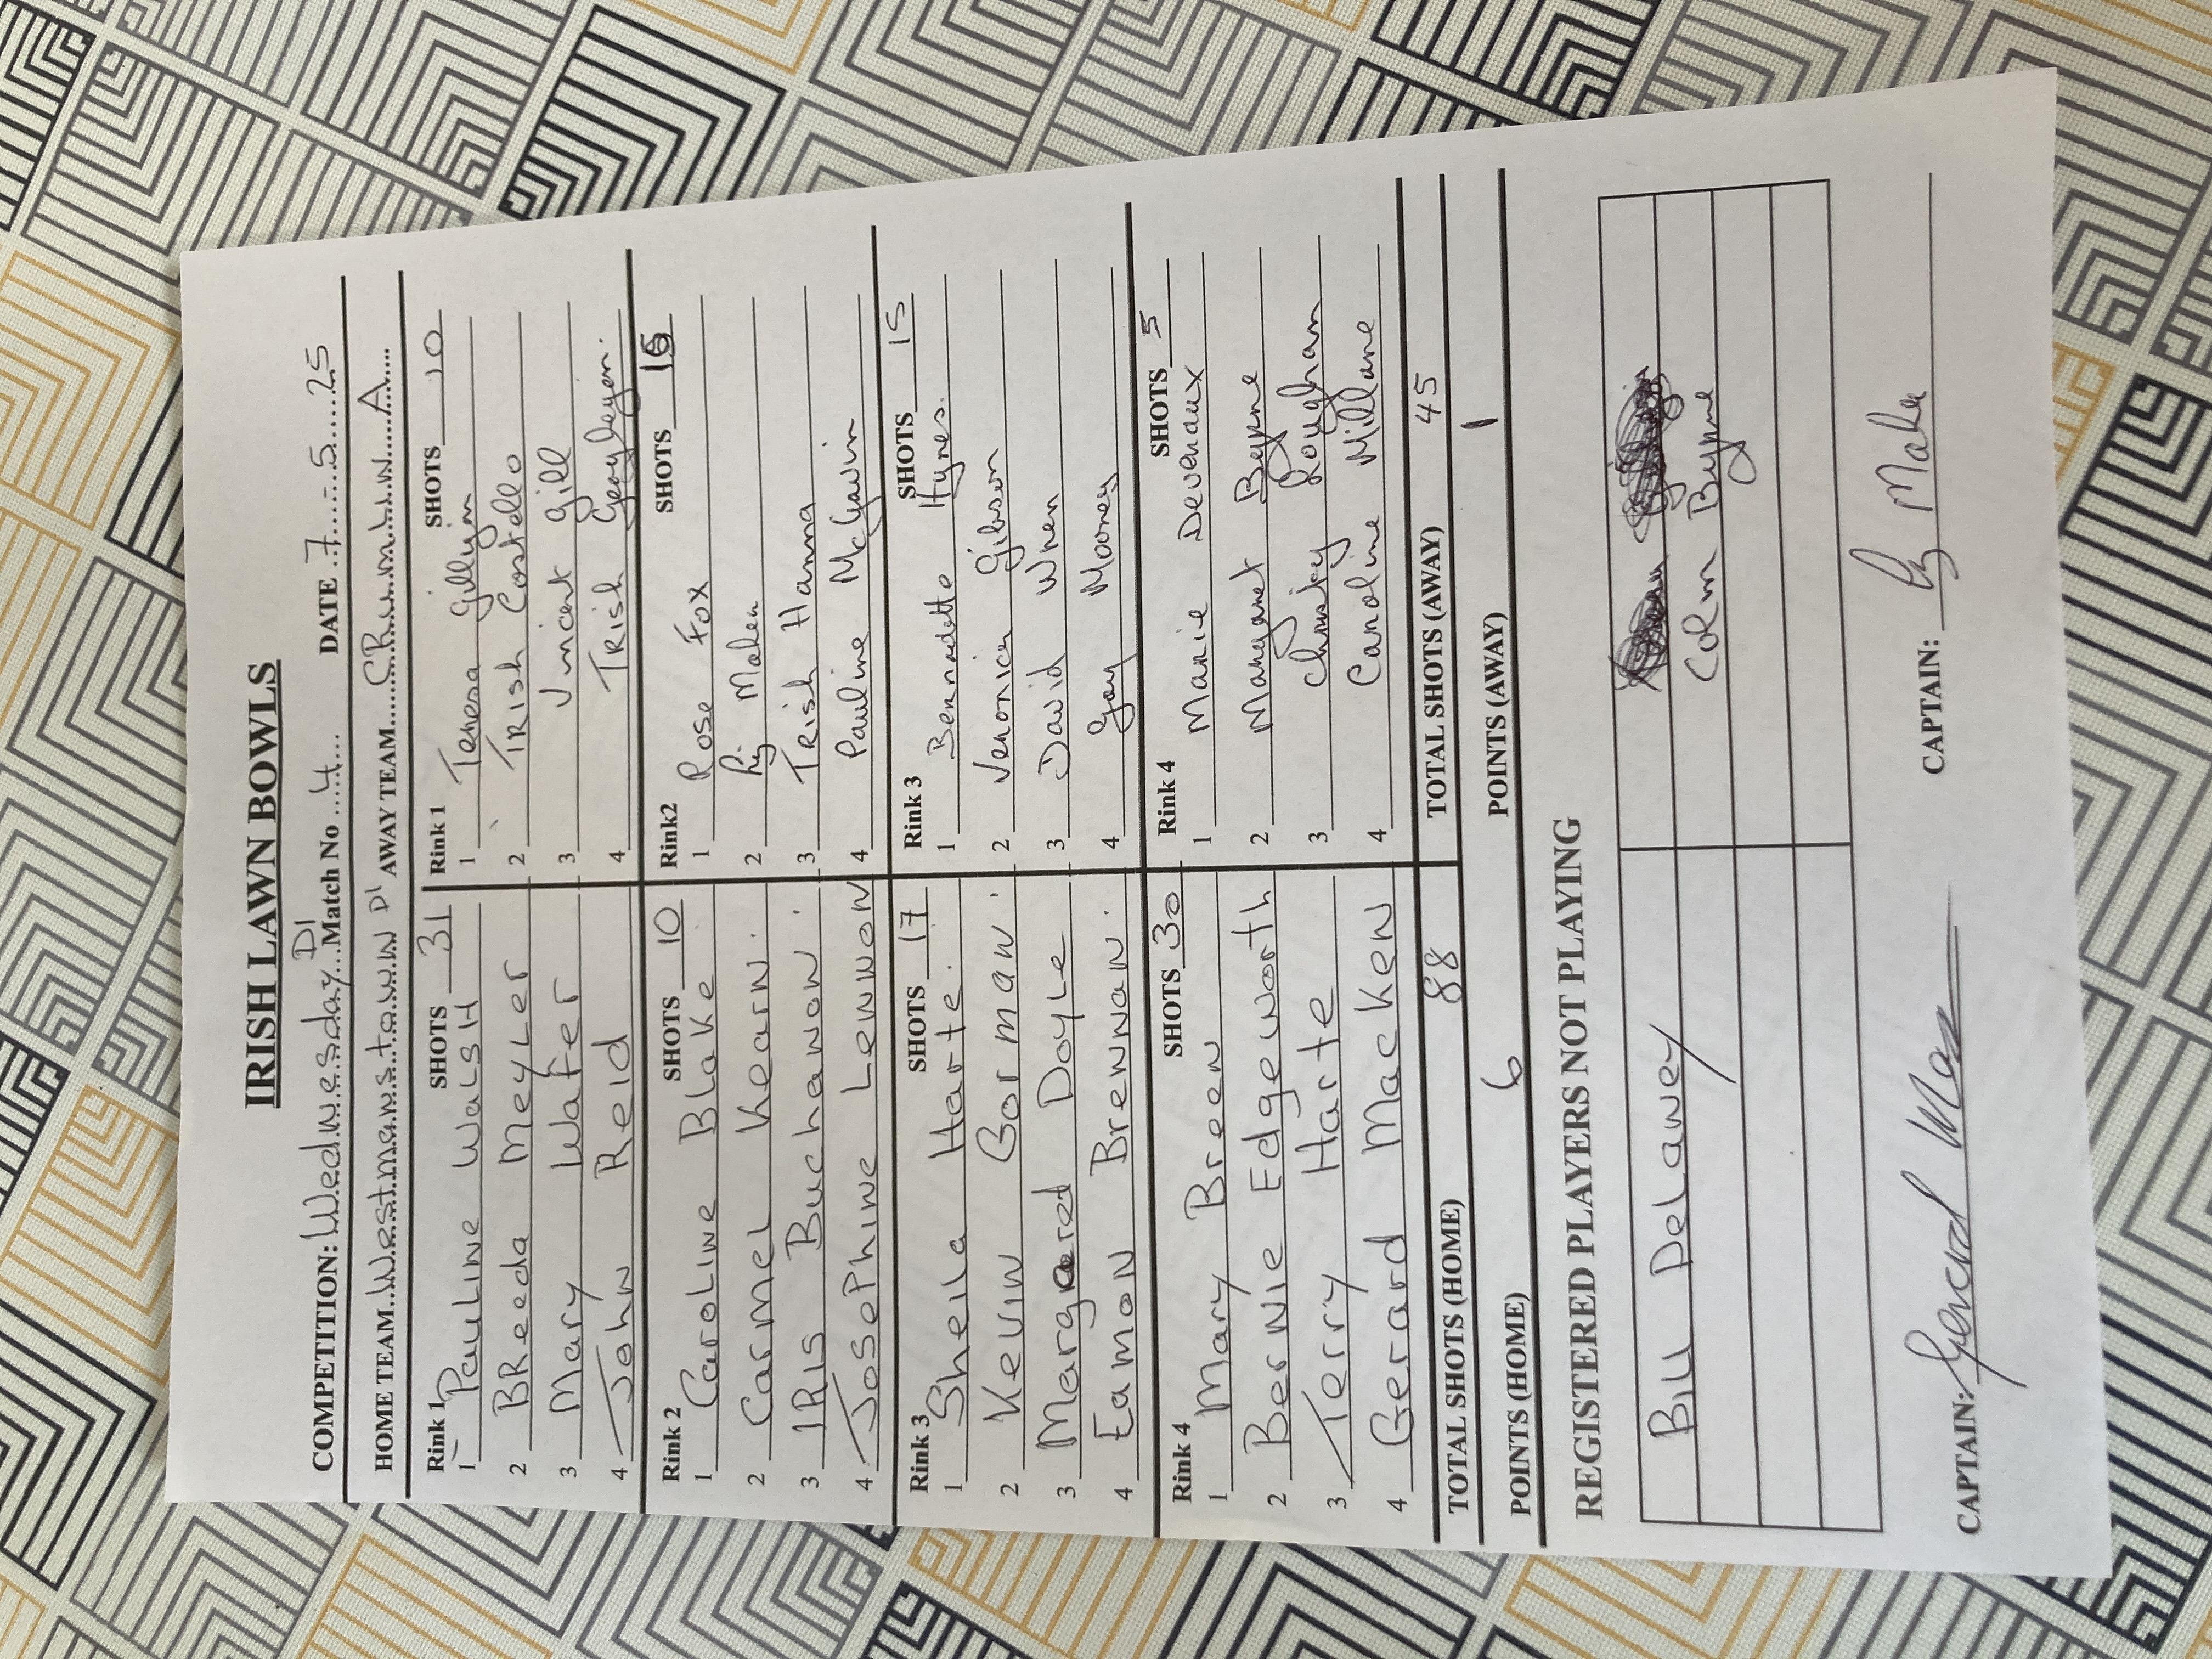 IRISH LAWN BOWLS
COMPETITION: Wednesday D1 Match No 4 DATE 7.5.25
HOME TEAM Westmanstown D1 AWAY TEAM CRumLIN A
Rink 1 SHOTS 31
1 Pauline Walsh
2 BReeda Meyler
3 Mary Wafer
4 John Reid
Rink 1 SHOTS 10
1 Teresa
2 Trish Costello
3 Vincent Gill
4 Trish
Rink 2 SHOTS 10
1 Caroline Blake
2 Carmel Khearn.
3 IRIS Buchanon.
4 Josephine Lennon
Rink2 SHOTS 15
1 Rose Fox
2 Maher
3 Trish Hanna
4 Pauline McGavin
Rink 3 SHOTS 17
1 Sheila Harte.
2 Kevin Gorman.
3 Margared Doyle
4 Eamon Brennan.
Rink 3 SHOTS 15
1 Bernadette Hynes.
2 Veronica Gibson
3 David Wren
4 Gay Mooney
Rink 4 SHOTS 30
1 Mary Breen
2 Bernie Edgeworth
3 Terry Harte
4 Gerrard Macken
Rink 4 SHOTS 5
1 Marie Devenaux
2 Margaret Beyrne
3 Christy Loughran
4 Caroline Millane
TOTAL SHOTS (HOME) 88 TOTAL SHOTS (AWAY) 45
POINTS (HOME) 6 POINTS (AWAY) 1
REGISTERED PLAYERS NOT PLAYING
Bill Delaney
Colm Byrne
CAPTAIN: Gerard CAPTAIN: Maher